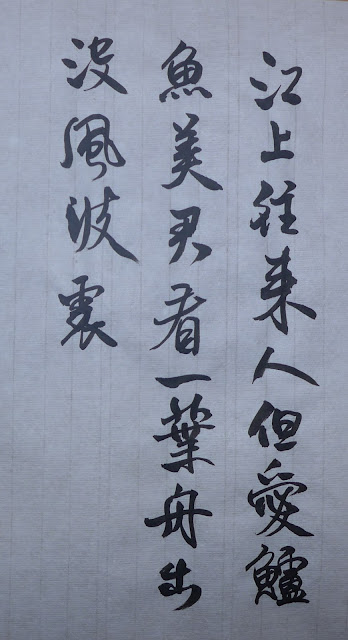 江上往来人但愛鱸
魚美君看一葉舟出
沒風波裏